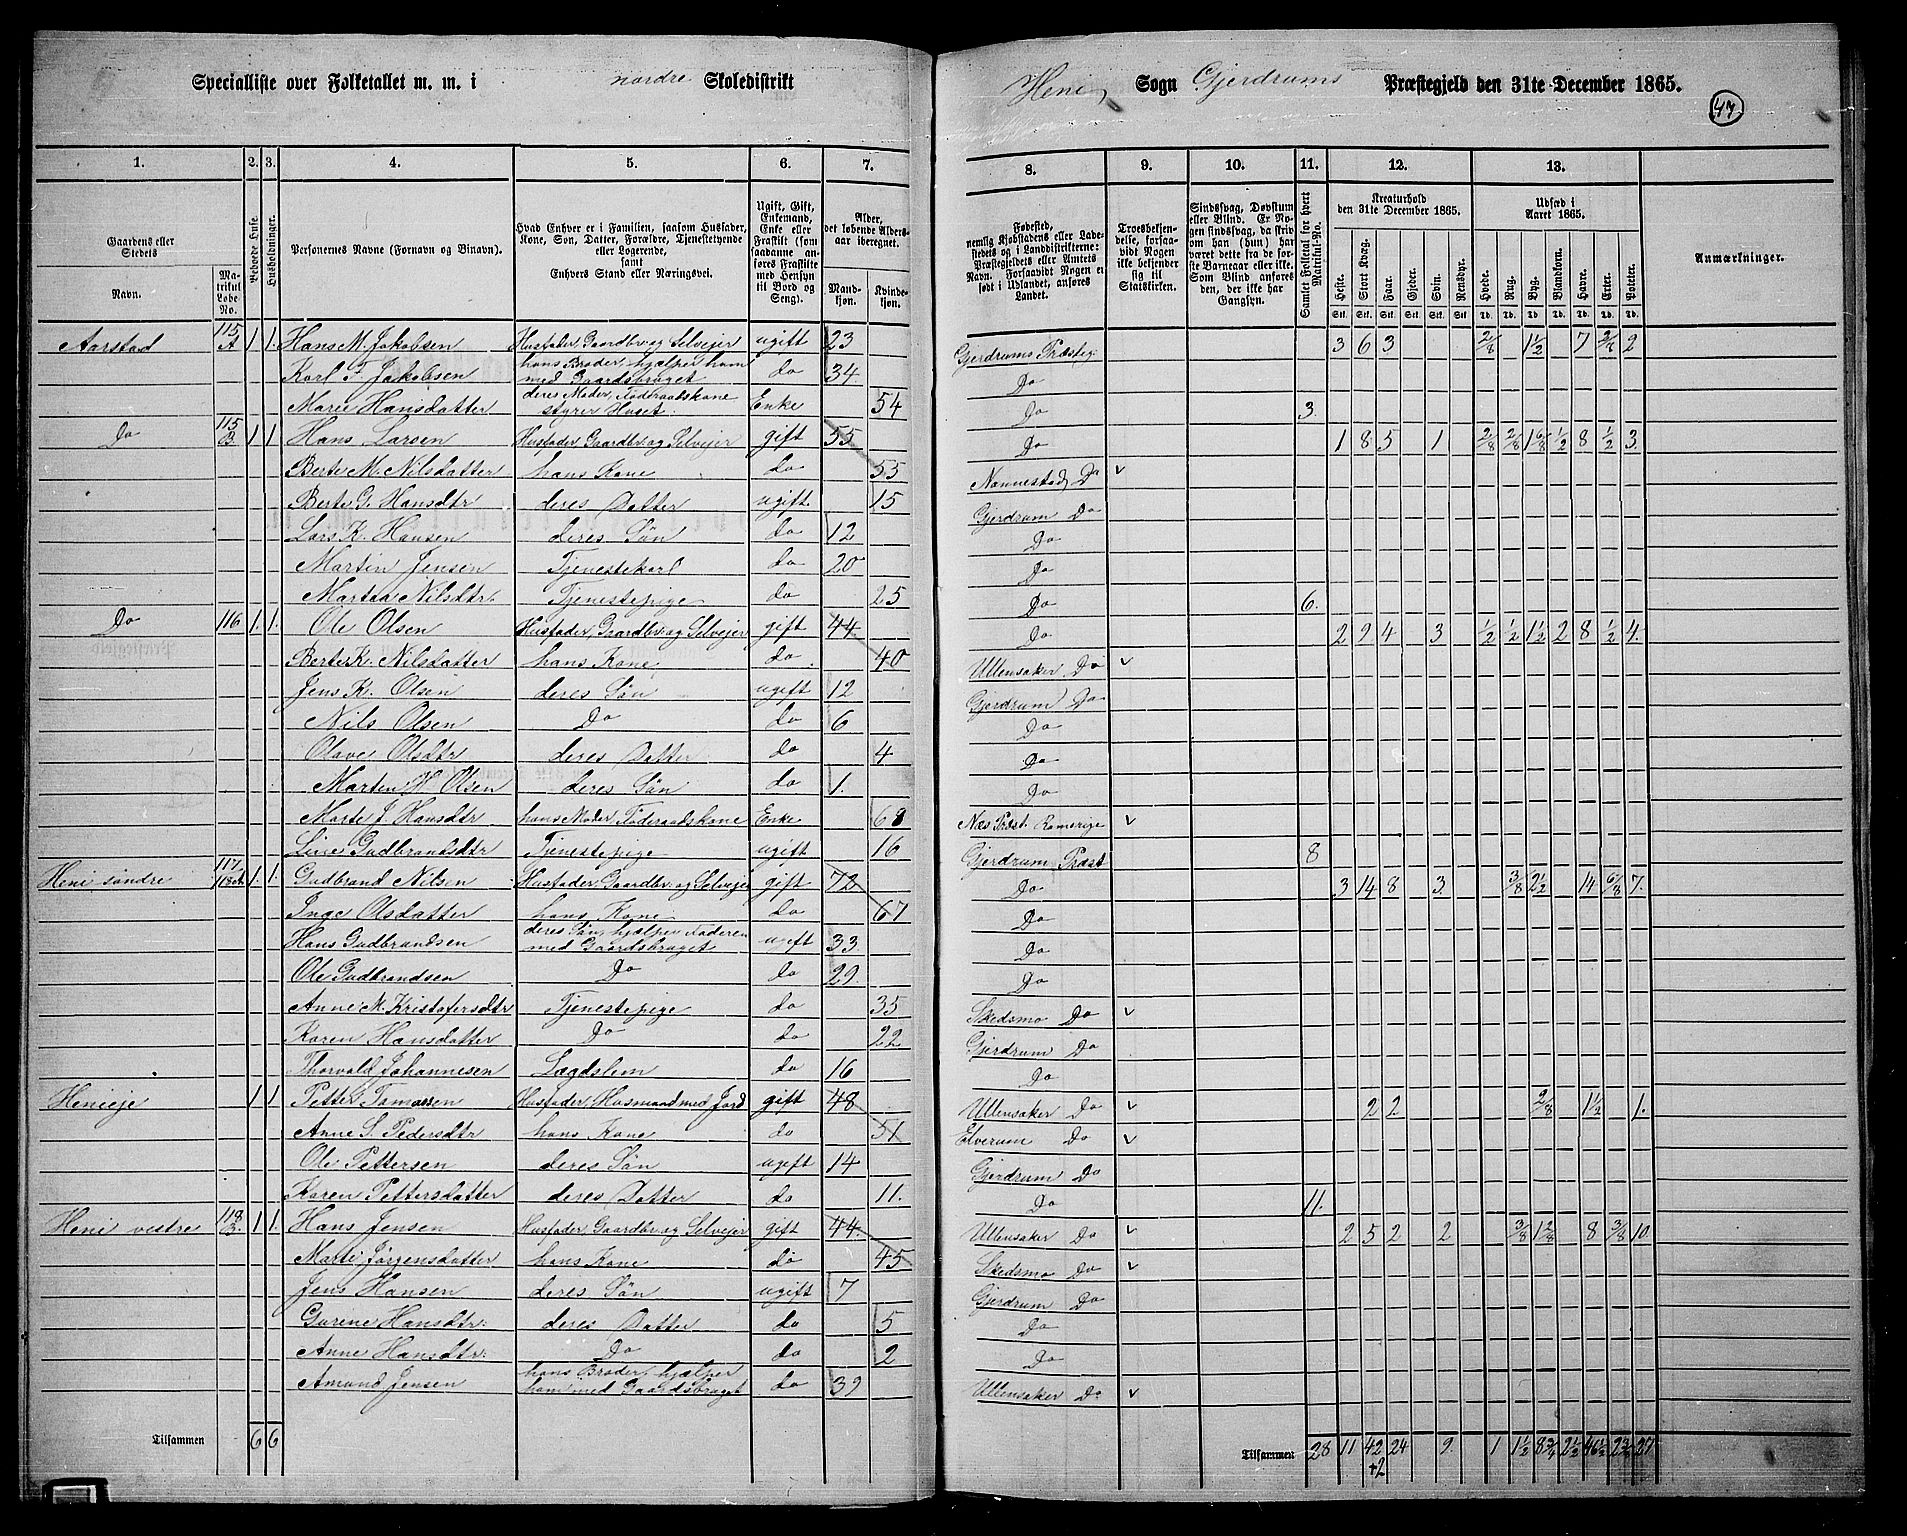 Specialliste over Folketallet m. m. i nordre Skoledistrikt Heni Sogn Gjerdrums Præstegjeld den 31te December 1865.
47
1. 2. 3. 4. 5. 6. 7. 8. 9. 10. 11. 12. 13.
Gaardens eller Stedets
Navn.
Matrikul Løbe-No.
Bebodde Huse.
Husholdninger.
Personernes Navne (Fornavn og Binavn).
Hvad Enhver er i Familien, saasom Husfader, Kone, Søn, Datter, Forældre, Tjenestetyende eller Logerende, samt Enhvers Stand eller Næringsvei.
Ugift, Gift, Enkemand, Enke eller Fraskilt (som saadanne anføres Fraskilte med Hensyn til Bord og Seng).
Alder, det løbende Alders-aar iberegnet.
Mandkjøn. Kvindekjøn.
Fødested, nemlig Kjøbstadens eller Ladestedets og i Landdistrikterne: Præstegjeldets eller Amtets Navn. Forsaavidt Nogen er født i Udlandet, anføres Landet.
Troesbekjendelse, forsaavidt Nogen ikke bekjender sig til Statskirken.
Sindssvag, Døvstum eller Blind. Er Nogen sindssvag, da skriv om han (hun) har været dette fra de første Barneaar eller ikke. Som Blind anføres den, der ikke har Gangsyn.
Samlet Folketal for hvert Matrikul-No.
Kreaturhold den 31te December 1865.
Heste. Stort Kvæg. Faar. Gjeder. Svin. Rensdyr.
Stk. Stk. Stk. Stk. Stk. Stk.
Udsæd i Aaret 1865.
Hvede. Rug. Byg. Blandkorn. Havre. Erter. Poteter.
Td. Td. Td. Td. Td. Td. Td.
Anmærkninger.
Aarstad 115 A 1 1. Hans M. Jakobsen Husfader, Gaardbr. og Selveier ugift 23 Gjerdrums Præsteg. 3 6 3 2/8 1 1/2 7 2/8 2
Karl T. Jakobsen hans Broder, hjælper ham med Gaardsbruget do 34 Do
Maree Hansdatter deres Moder, Føderaadskone styrer Huset. Enke 54 Do 3.
Do 115 B. 1 1 Hans Larsen Husfader, Gaardbr. og Selveier gift 55 Do 1 8 5 1 2/8 2/8 1 6/8 1/2 8 1/2 3.
Berte M. Nilsdatter hans Kone do 55 Nannestad Do
Berte G. Hansdtr deres Datter ugift 15 Gjerdrum Do
Lars K. Hansen deres Søn do 12 Do
Martin Jensen Tjenestekarl do 20 Do
Martea Nilsdtr. Tjenestepige do 25 Do 6.
Do 116 1. 1. Ole Olsen Husfader, Gaardbr. og Selveier gift 44. Do 2 9 4 3 1/2 1/2 1 1/2 2 8 1/2 4.
Berte K. Nilsdatter hans Kone do. 40 Ullensaker Do
Jens K. Olsen deres Søn ugift 12 Gjerdrum Do
Nils Olsen Do do 6 Do
Olave Olsdtr deres Datter do 4 Do
Marten H. Olsen deres Søn do 1. Do
Marte J. Hansdtr hans Moder, Føderaadskone Enke 68 Næs Præst. Romerige
Line Gudbrandsdtr Tjenestepige ugift 16 Gjerdrum Præst 8
Heni søndre 117 118A 1. 1. Gudbrand Nilsen Husfader, Gaardbr. og Selveier gift 72 Do 3 14 8 3. 3/8 2 1/2 14 6/8 7.
Inge Olsdatter hans Kone do 67 Do
Hans Gudbrandsen deres Søn, hjælper Faderen med Gaardsbruget ugift 33. Do
Ole Gudbrandsen Do do 29. Do
Anne M. Kristofersdtr Tjenestepige do 35 Skedsmo Do
Karen Hansdatter Do do 22 Gjerdrum Do
Thorvald Johannesen Lægdslem do 16 Do
Henieje 1 1 Petter Tomassen Husfader, Husmand med Jord gift 48 Ullensaker Do 2 2 2/8 1 1/2 1.
Anne S. Pedersdtr hans Kone do 51 Elverum Do
Ole Pettersen deres Søn ugift 14 Gjerdrum Do
Karen Pettersdatter deres Datter do 11. Do 11.
Heni vestre 118 B. 1 1. Hans Jensen Husfader, Gaardbr. og Selveier gift 44. Ullensaker Do 2 5 2 2 3/8 1 2/8 8 3/8 10.
Marte Jørgensdatter hans Kone do 45 Skedsmo Do
Jens Hansen deres Søn ugift 7 Gjerdrum Do
Gurine Hansdtr. deres Datter do 5 Do
Anne Hansdtr. Do do 2 Do
Amund Jensen hans Broder, hjælper ham med Gaardsbruget do 39 Ullensaker Do
Tilsammen 6 6 Tilsammen 28 11 42 24 9. 1 1 1/2 8 3/4 2 1/2 46 1/2 2 3/8 27
+2